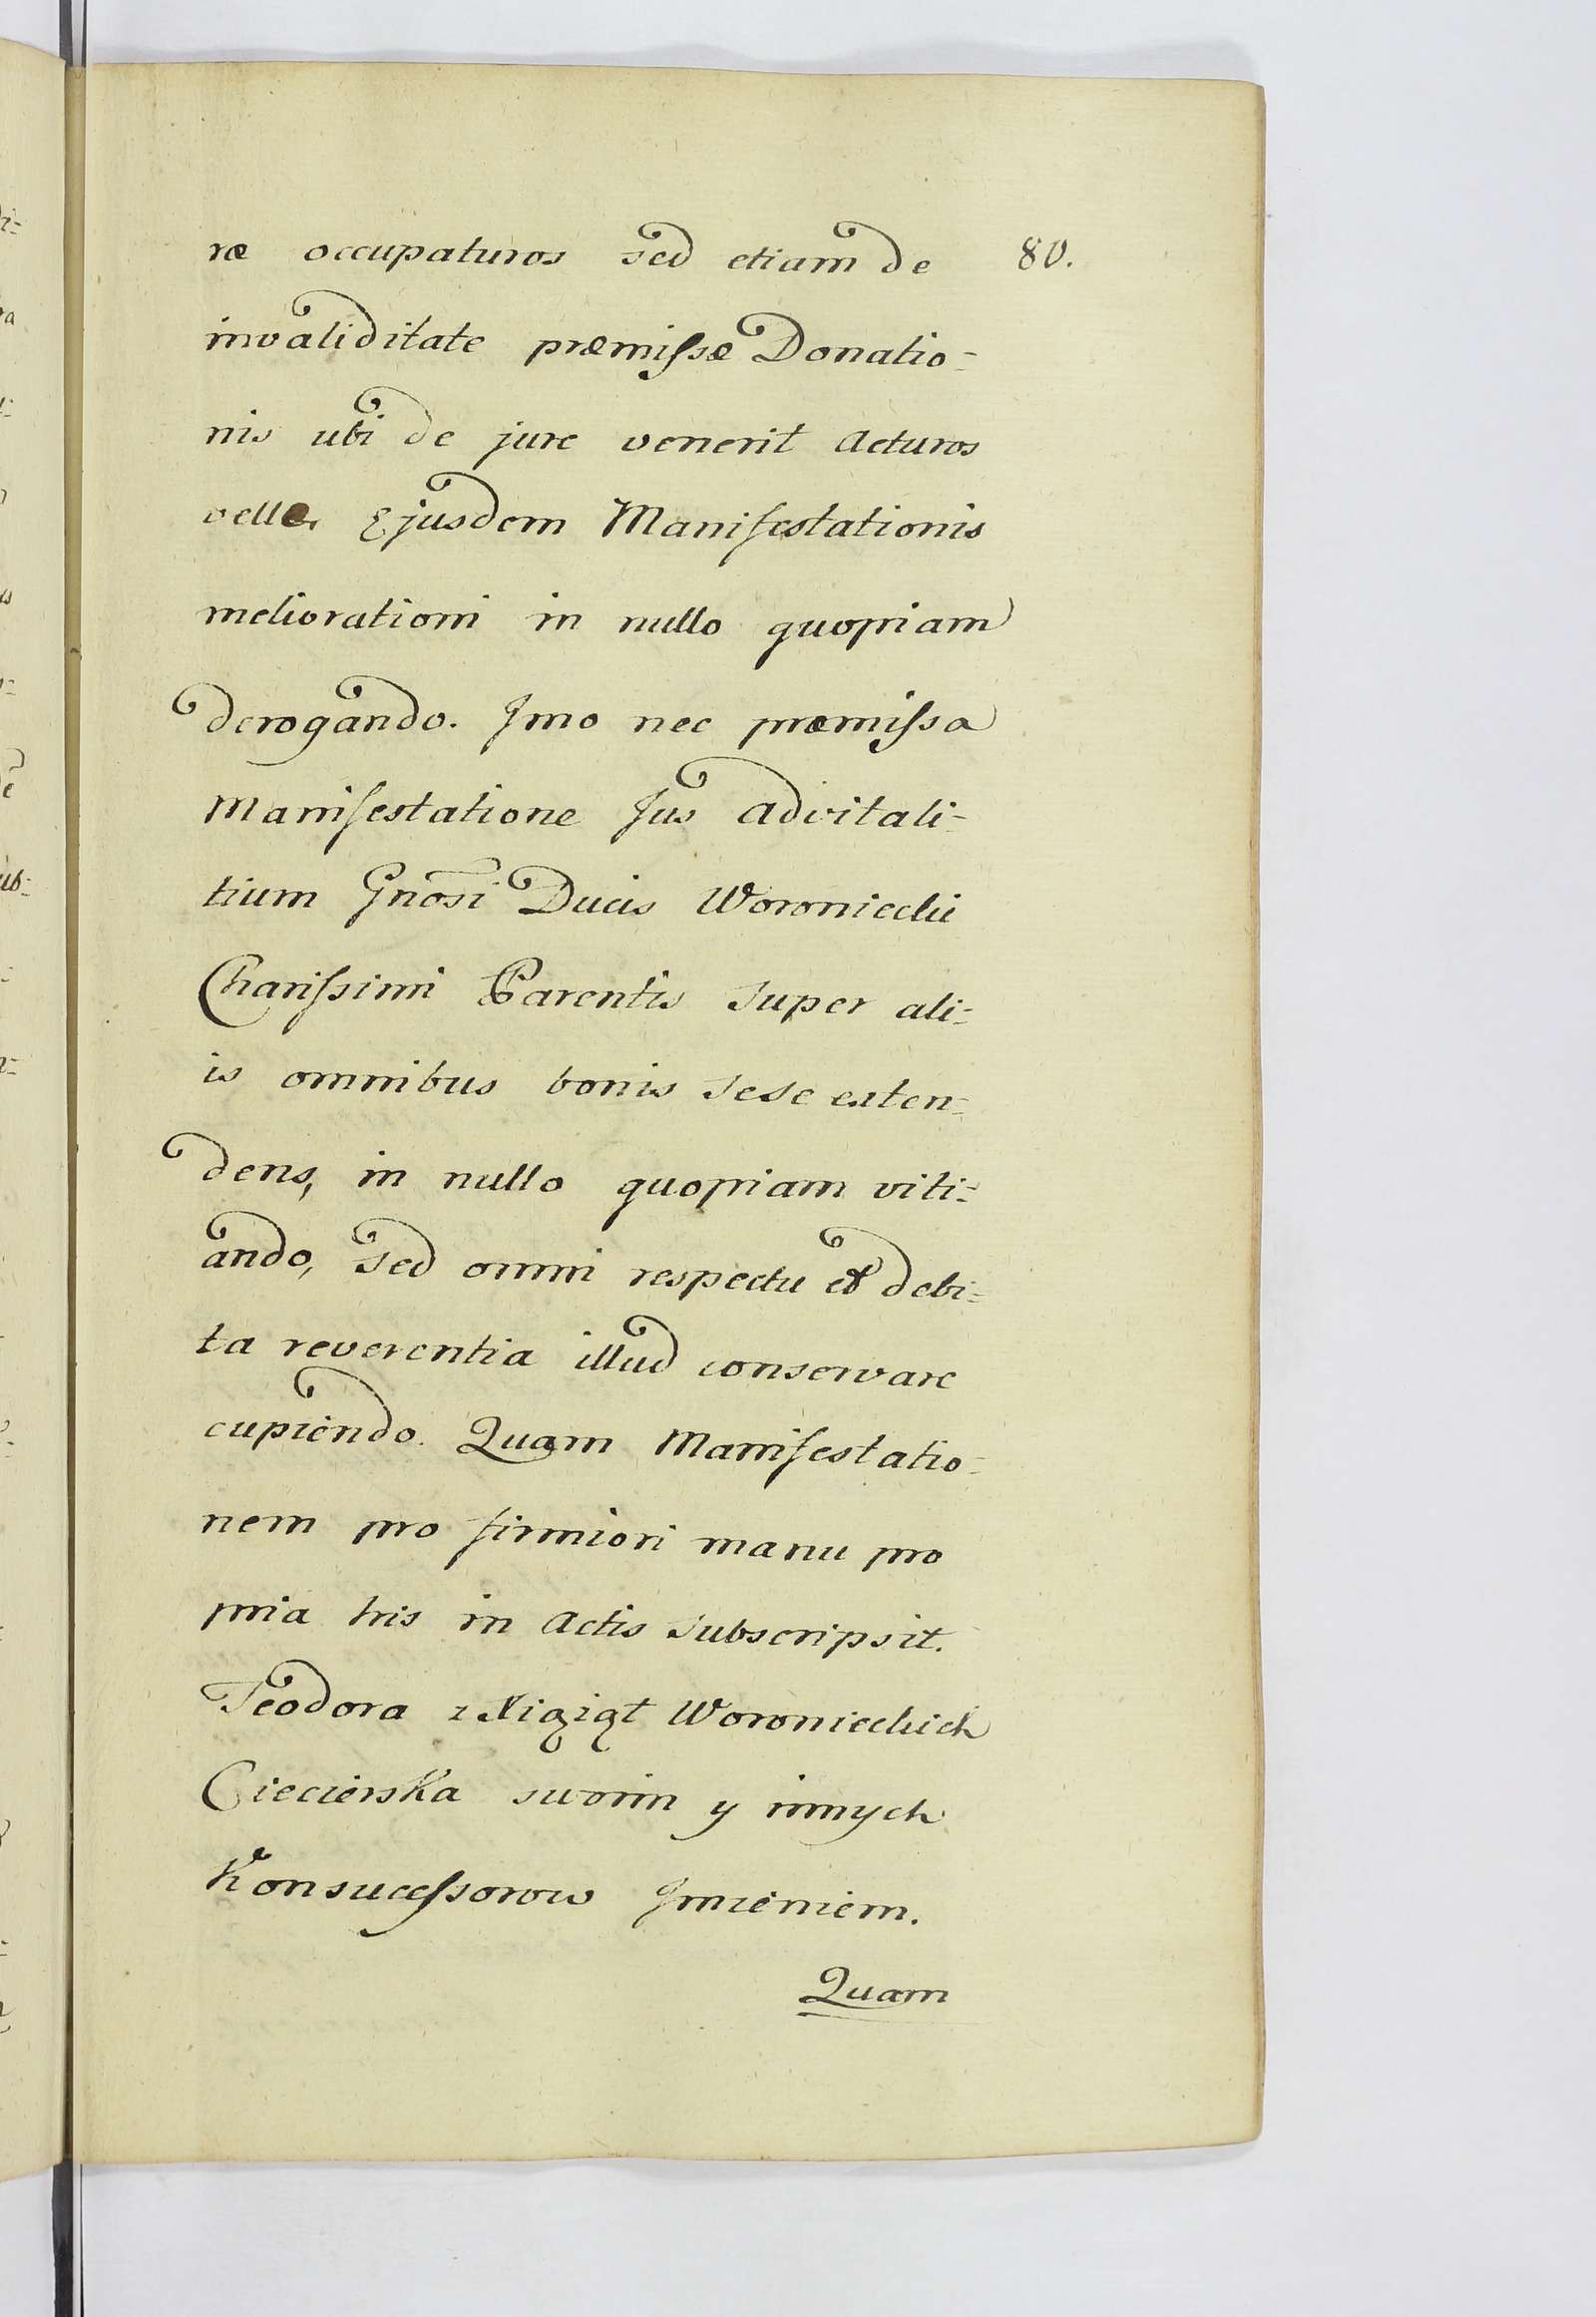 80.
ræ occupaturos sed etiam de
invaliditate præmissæ Donatio=
nis ubi de jure venerit acturos
velle, Ejusdem Manifestationis
meliorationi in nullo quopiam
derogando. Imo nec præmissa
Manifestatione Jus advitali=
tium Gnosi Ducis Woroniecki
Charissimi Parentis super ali=
is omnibus bonis sese exten=
dens, in nullo quopiam viti=
ando, sed omni respectu et debi=
ta reverentia illud conservare
cupiendo. Quam Manifestatio=
nem pro firmiori manu pro
pria his in Actis subscripsit.
Teodora z Xiążąt Woronieckich
Ciecierska swoim y innych
Konsucessorow Jmieniem.
Quam